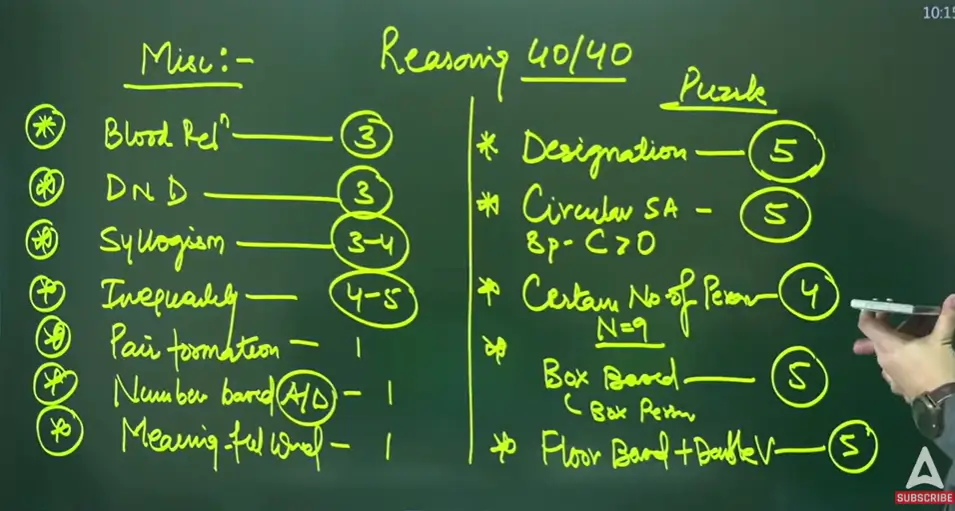 10:15
Reasoning 40/40
Misc:-
* Blood Relⁿ — 3
* DND — 3
* Syllogism — 3-4
* Inequality — 4-5
* Pair formation — 1
* Number based A/D — 1
* Meaningful word — 1
Puzzle
* Designation — 5
* Circular SA - 5
8p - C > O
* Certain No of Person — 4
N=9
* Box Based — 5
Box Person
* Floor Based + Double V — 5
SUBSCRIBE